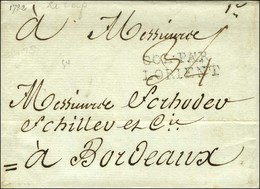 1792
à Messieurs
COL. PAR
LORIENT
Messieurs Schrodev
Schillev et Cie
à Bordeaux